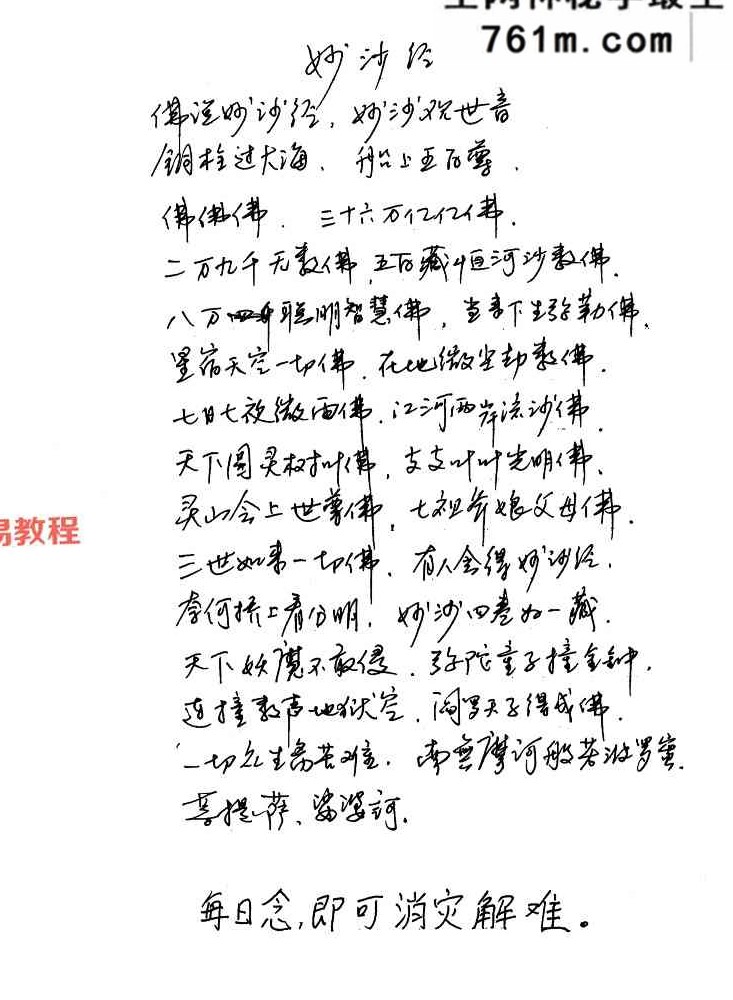 761m.com
妙沙经
佛说妙沙经，妙沙观世音
铜栓过大海、船上五百尊．
佛佛佛．三十六万亿亿佛．
二万九千无数佛．五百藏恒河沙数佛．
八万四千聪明智慧佛，当来下生弥勒佛．
星宿天空一切佛．在地微尘劫数佛．
七日七夜微雨佛．江河两岸流沙佛．
天下园灵权树叶佛，支支叶叶光明佛、
灵山会上世尊佛，七祖爷娘父母佛．
三世如来一切佛．有人念得妙沙经．
奈何桥上看分明，妙沙四卷为一藏．
天下妖魔不敢侵．弥陀童子撞金钟．
连撞数声地狱空．阎罗天子得成佛．
一切众生离苦难．南無摩诃般若波罗蜜．
菩提萨、娑婆诃．
每日念,即可消灾解难。
易教程